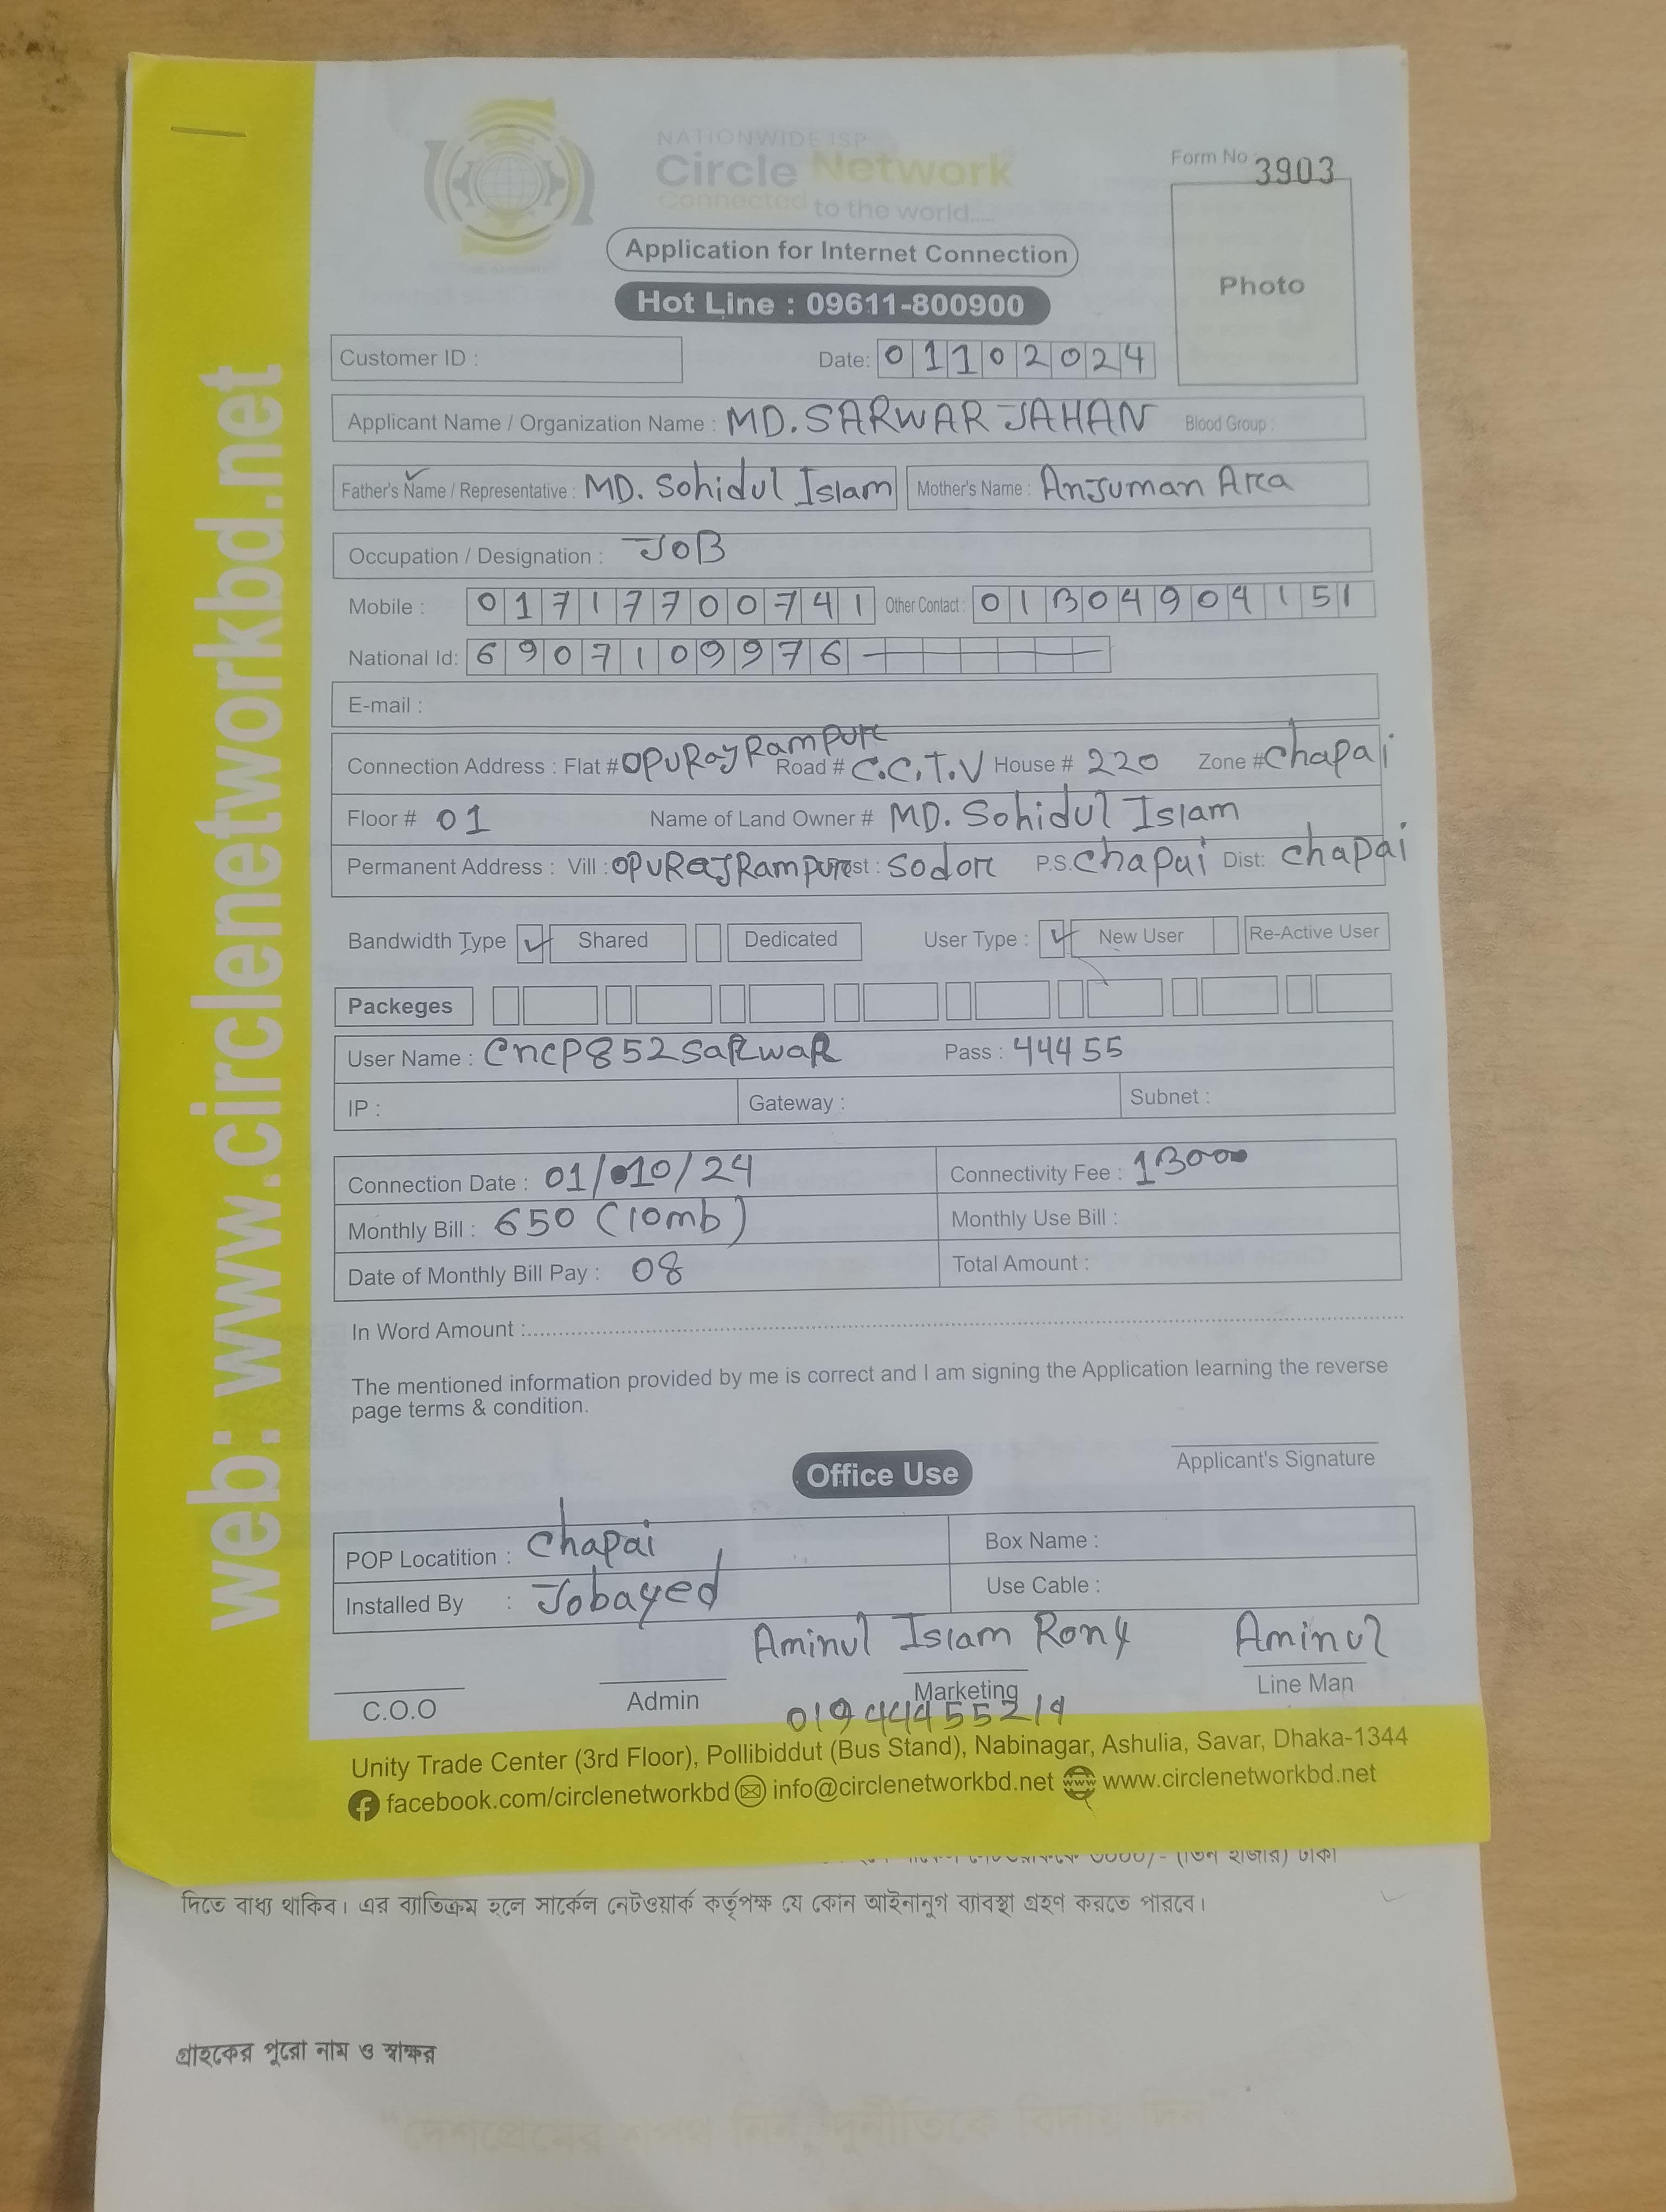 web: www.circlenetworkbd.net
NATIONWIDE ISP
Circle Network
Connected to the world.....
Form No 3903
Photo
Application for Internet Connection
Hot Line : 09611-800900
Customer ID : Date: 01102024
Applicant Name / Organization Name : MD. SARWAR JAHAN Blood Group :
Father's Name / Representative : MD. Sohidul Islam Mother's Name : Anjuman Ara
Occupation / Designation : JOB
Mobile : 01717700741 Other Contact : 01304904151
National Id: 6907109976
E-mail :
Connection Address : Flat # OPURajRampur Road # C.C.T.V House # 220 Zone # Chapai
Floor # 01 Name of Land Owner # MD. Sohidul Islam
Permanent Address : Vill : OPURajRampur Post : Sodor P.S. Chapai Dist: Chapai
Bandwidth Type Shared Dedicated User Type : New User Re-Active User
Packeges
User Name : Cncp852SaRwaR Pass : 44455
IP : Gateway : Subnet :
Connection Date : 01/10/24 Connectivity Fee :
Monthly Bill : 650 (10mb) Monthly Use Bill :
Date of Monthly Bill Pay : 08 Total Amount :
In Word Amount :
The mentioned information provided by me is correct and I am signing the Application learning the reverse
page terms & condition.
Applicant's Signature
Office Use
POP Locatition : Chapai Box Name :
Installed By : Jobayed Use Cable :
Aminul Islam Rony Aminul
C.O.O Admin Marketing Line Man
Unity Trade Center (3rd Floor), Pollibiddut (Bus Stand), Nabinagar, Ashulia, Savar, Dhaka-1344
facebook.com/circlenetworkbd info@circlenetworkbd.net www.circlenetworkbd.net
৩০০০/- (তিন হাজার) টাকা
দিতে বাধ্য থাকিব। এর ব্যাতিক্রম হলে সার্কেল নেটওয়ার্ক কর্তৃপক্ষ যে কোন আইনানুগ ব্যাবস্থা গ্রহণ করতে পারবে।
গ্রাহকের পুরো নাম ও স্বাক্ষর
"দেশপ্রেমের শপথ নিন, দুর্নীতিকে বিদায় দিন"